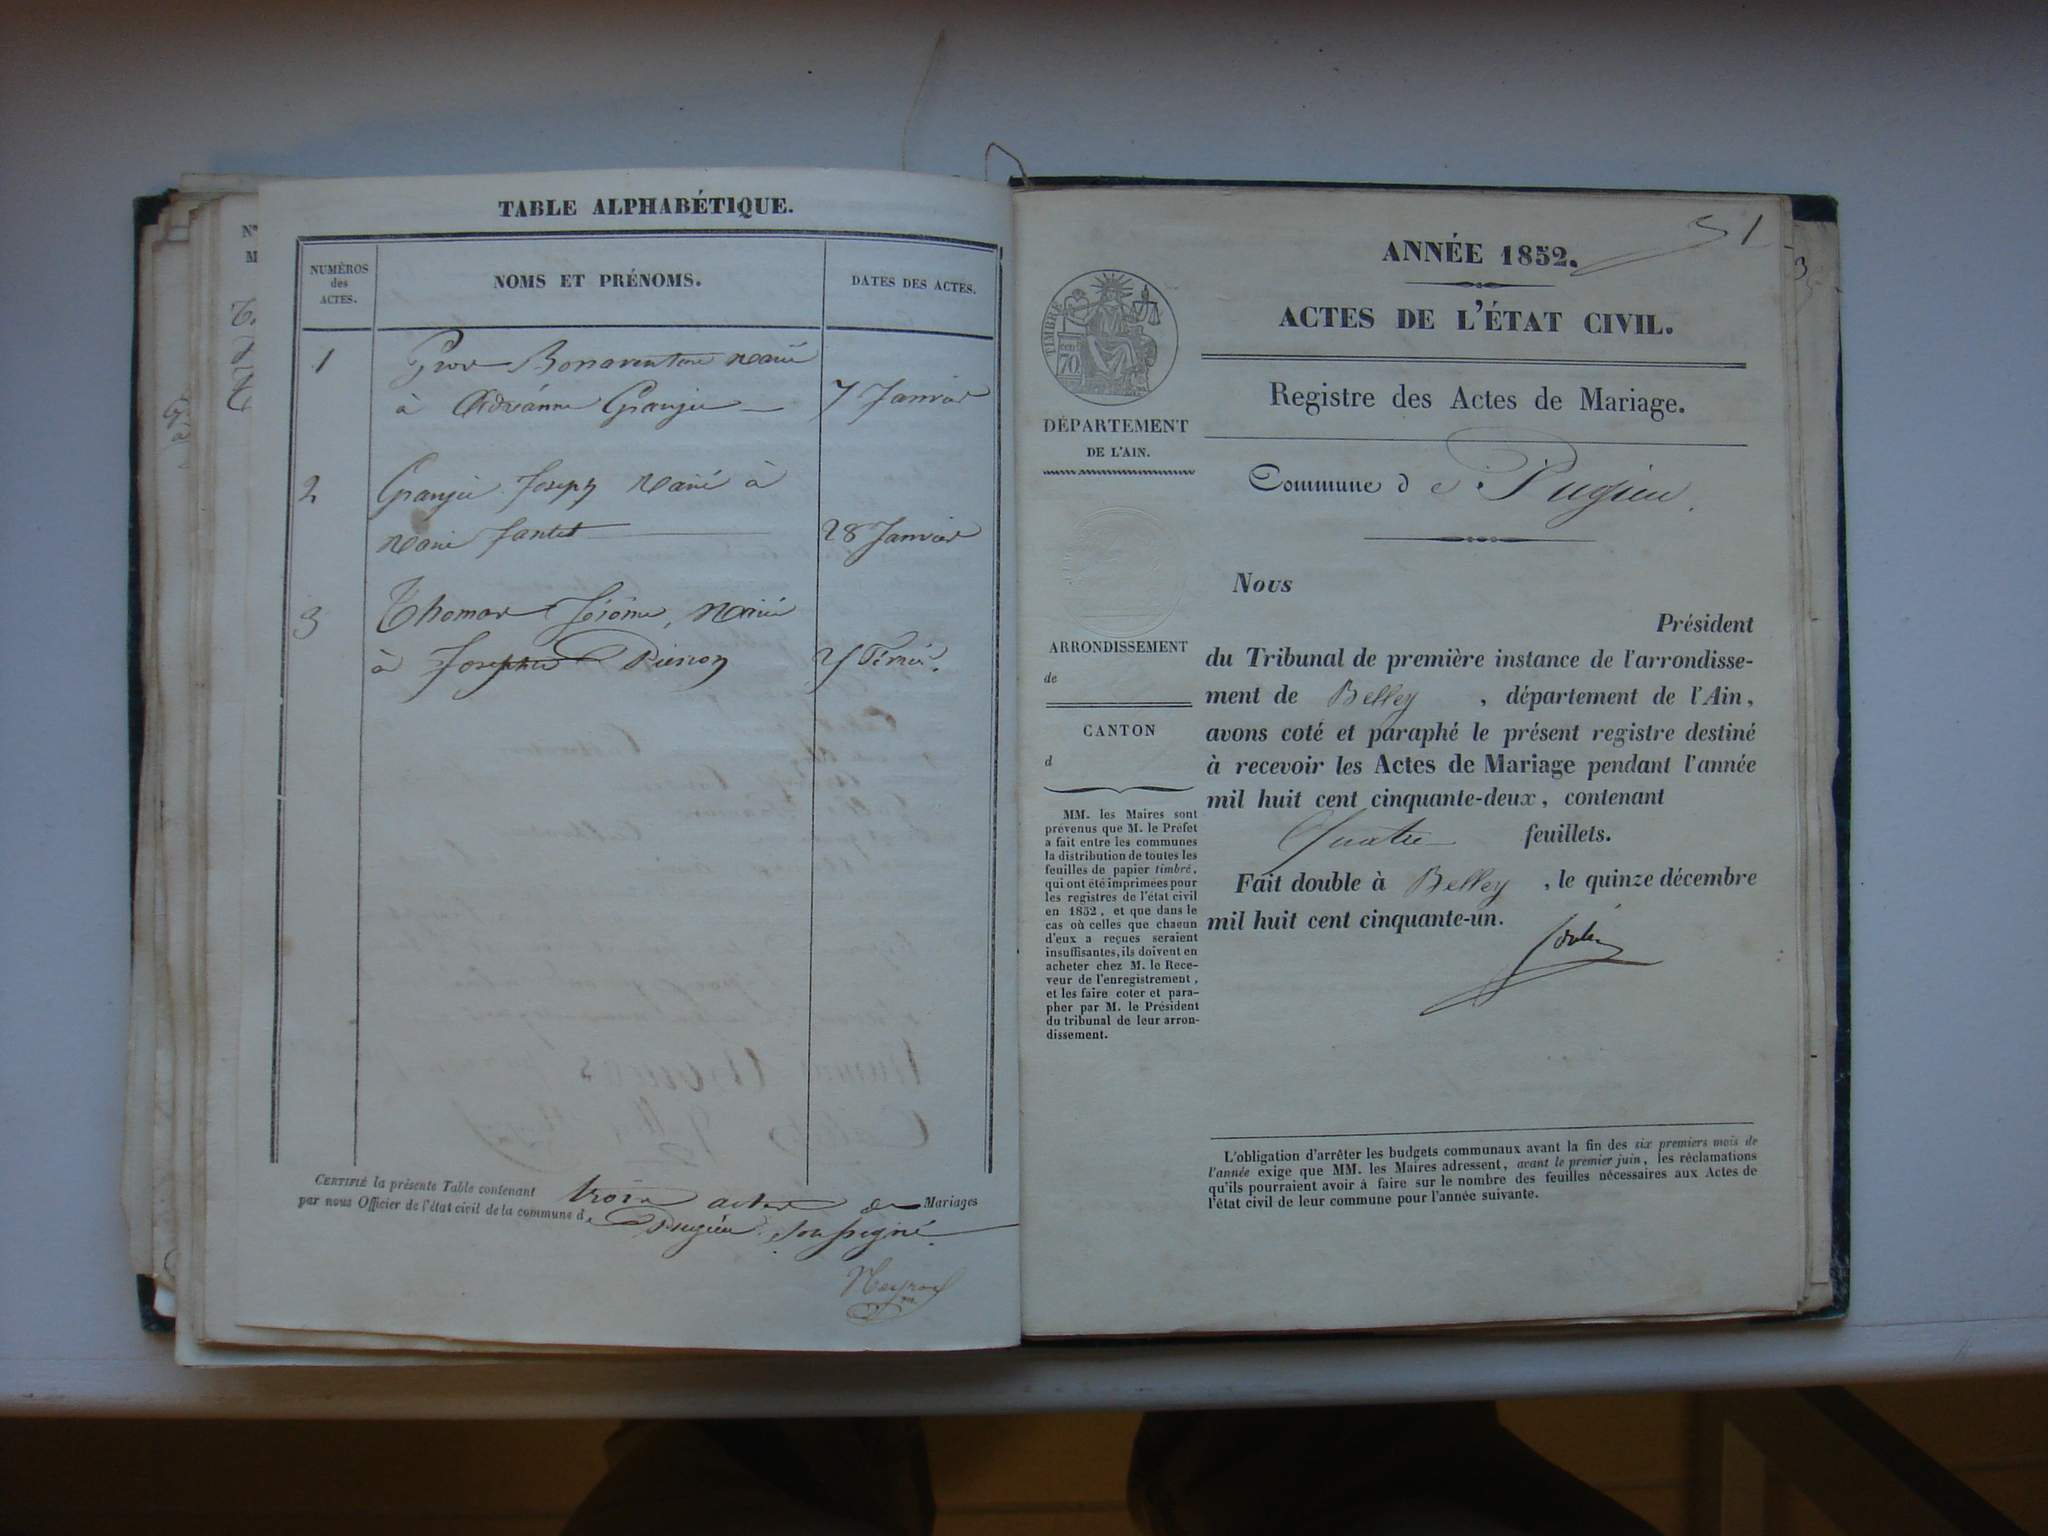 TABLE ALPHABÉTIQUE.
NUMÉROS
des
ACTES.
NOMS ET PRÉNOMS.
DATES DES ACTES.
1
Bonaventure Marié
à Adrianne Granju
7 Janvier
2
Joseph Marié à
Marie Jantet
28 Janvier
3
Thomas Jérôme, Marié
à Josephte
CERTIFIÉ la présente Table contenant trois actes de Mariages
par nous Officier de l'état civil de la commune de Pugieu soussigné
ANNÉE 1852.
1
ACTES DE L'ÉTAT CIVIL.
TIMBRE
70
DÉPARTEMENT
DE L'AIN.
Registre des Actes de Mariage.
Commune de Pugieu.
ARRONDISSEMENT
de
CANTON
d
MM. les Maires sont
prévenus que M. le Préfet
a fait entre les communes
la distribution de toutes les
feuilles de papier timbré,
qui ont été imprimées pour
les registres de l'état civil
en 1852, et que dans le
cas où celles que chacun
d'eux a reçues seraient
insuffisantes, ils doivent en
acheter chez M. le Rece-
veur de l'enregistrement,
et les faire coter et para-
pher par M. le Président
du tribunal de leur arron-
dissement.
Nous
Président
du Tribunal de première instance de l'arrondisse-
ment de Belley , département de l'Ain,
avons coté et paraphé le présent registre destiné
à recevoir les Actes de Mariage pendant l'année
mil huit cent cinquante-deux, contenant
Quatre feuillets.
Fait double à Belley , le quinze décembre
mil huit cent cinquante-un.
L'obligation d'arrêter les budgets communaux avant la fin des six premiers mois de
l'année exige que MM. les Maires adressent, avant le premier juin, les réclamations
qu'ils pourraient avoir à faire sur le nombre des feuilles nécessaires aux Actes de
l'état civil de leur commune pour l'année suivante.